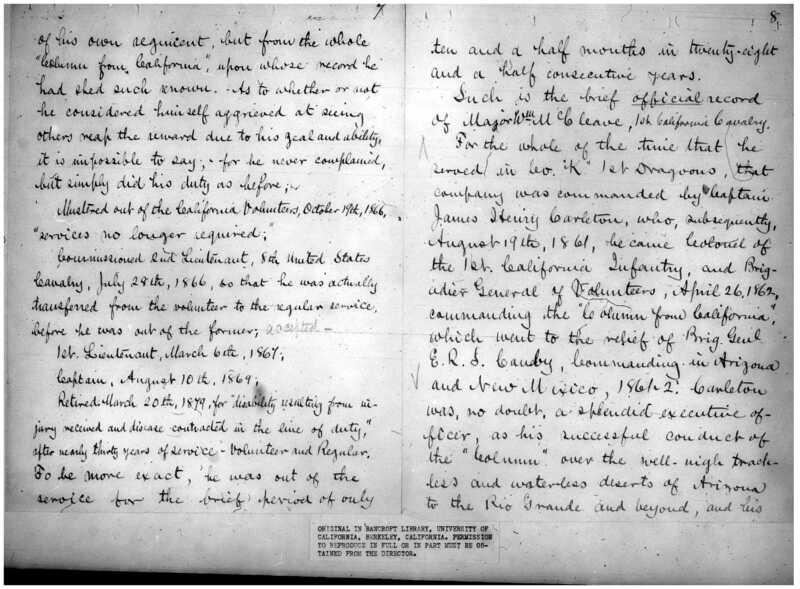 7
of his own regiment, but from the whole
"Column from California", upon whose record he
had shed such renown. - As to whether or not
he considered himself aggrieved at seeing
others reap the reward due to his zeal and ability,
it is impossible to say; - for he never complained,
but simply did his duty as before;
Mustered out of the California Volunteers, October 19th, 1866,
"services no longer required;"
Commissioned 2nd Lieutenant, 8th United States
Cavalry, July 28th, 1866, so that he was actually
transferred from the volunteer to the regular service,
before he was out of the former; accepted -
1st. Lieutenant, March 6th, 1867;
Captain, August 10th, 1869;
Retired March 20th, 1879, for "disability resulting from in-
jury received and disease contracted in the line of duty,"
after nearly thirty years of service - Volunteer and Regular.
To be more exact, he was out of the
service for the brief period of only
8.
ten and a half months in twenty-eight
and a half consecutive years.
Such is the brief official record
of Major Wm McCleave, 1st California Cavalry.
For the whole of the time that he
served in Co. "K" 1st Dragoons, that
company was commanded by Captain
James Henry Carleton, who, subsequently,
August 19th, 1861, became Colonel of
the 1st. California Infantry, and Brig-
adier General of Volunteers, April 26, 1862,
commanding the "Column from California",
which went to the relief of Brig. Genl
E. R. S. Canby, Commanding in Arizona
and New Mexico, 1861-2. Carleton
was, no doubt, a splendid executive of-
ficer, as his successful conduct of
the "Column" over the well-nigh track-
less and waterless deserts of Arizona
to the Rio Grande and beyond, and his
ORIGINAL IN BANCROFT LIBRARY, UNIVERSITY OF
CALIFORNIA, BERKELEY, CALIFORNIA. PERMISSION
TO REPRODUCE IN FULL OR IN PART MUST BE OB-
TAINED FROM THE DIRECTOR.